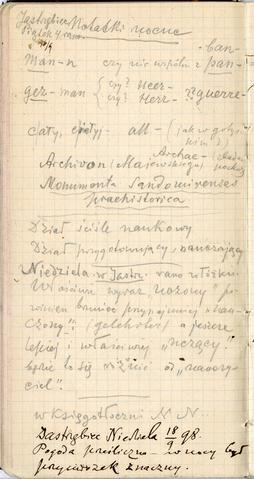 Jastrzębiec Notatki nocne
Piątek
- ban-
man-n czy nie wspóln. z pan-
ger-man { czy? Heer- guerre-
czy? Herr-
cały, all- (jak w
Archivon (Majewskiego) Archae-
Monumenta Sandomirensia
praehistorica
Dział ściśle naukowy
Dział przygotowujący, nauczający
Niedziela w Jastrz. rano w łóżku
Właściwie wyraz „uczony" po-
winien brzmieć przynajmniej „nau-
czony" (gelehrter) a jeszcze
lepiej i właściwiej „uczący"
będzie to się różnić od „nauczy-
ciel."
w Księgotłoczni N.N.
Jastrzębiec Niedziela 18/9 98.
Pogoda prześliczna - w nocy był
przymrozek znaczny.